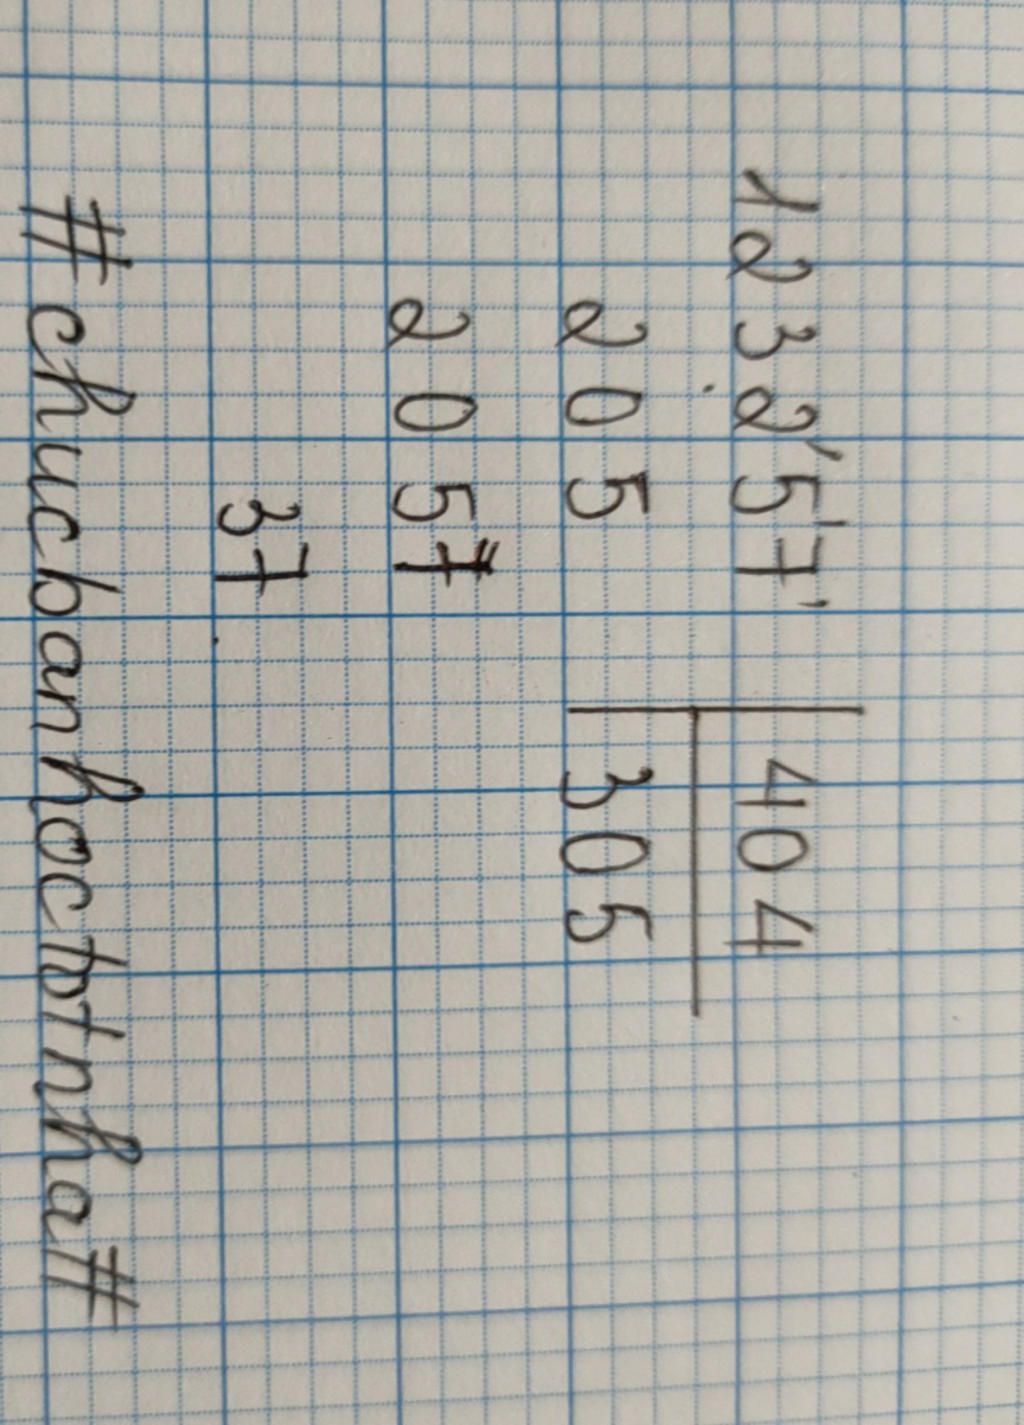 123257 404
205 305
2057
37
#chucbanhoctotnha#